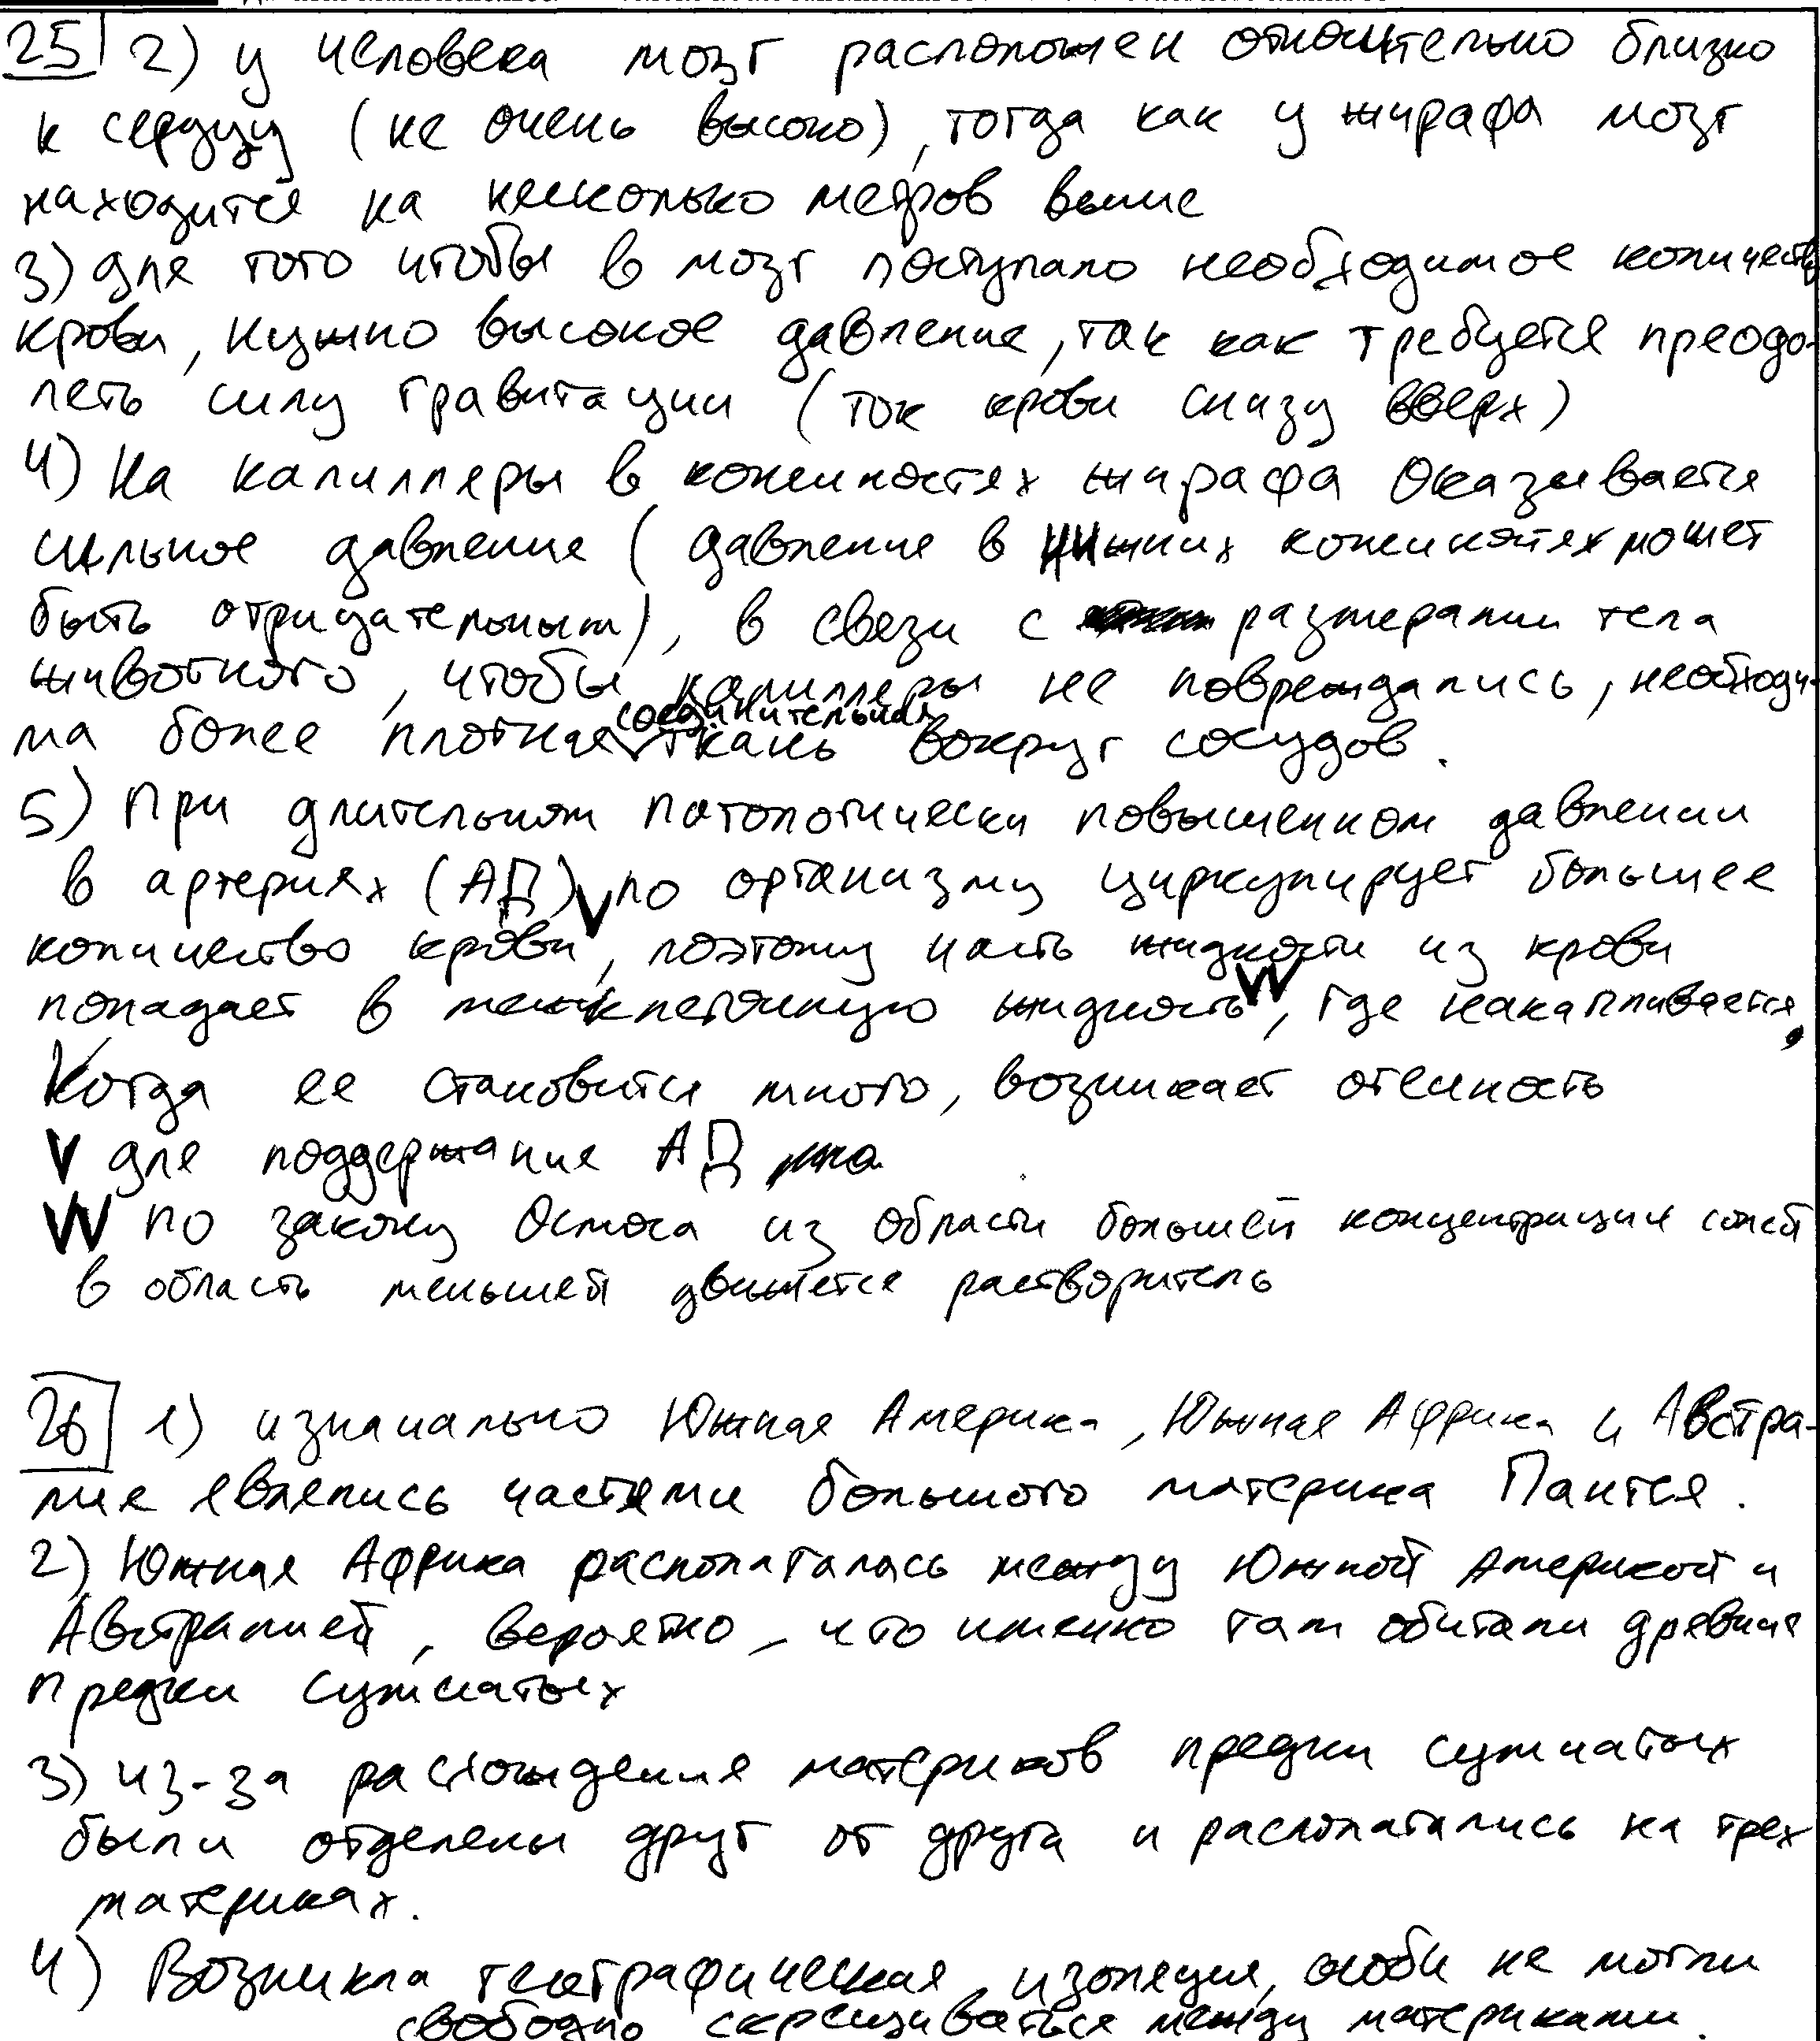 25 2) у человека мозг расположен относительно близко
к сердцу (не очень высоко), тогда как у жирафа мозг
находится на несколько метров выше
3) для того чтобы в мозг поступало необходимое количеств
крови, нужно высокое давление, так как требуется преодо-
леть силу гравитации (ток крови снизу вверх)
4) На капилляры в конечностях жирафа оказывается
сильное давление (давление в нижних конечностях может
быть отрицательным), в связи с размерами тела
животного, чтобы капилляры не повреждались, необходи-
соединительная
ма более плотная V ткань вокруг сосудов.
5) При длительном патологически повышенном давлении
в артериях (АД) V по организму циркулирует большее
количество крови, поэтому часть жидкости из крови
попадает в межклеточную жидкость W, где накапливается.
Когда ее становится много, возникает отечность
V для поддержание АД
W по закону Осмоса из области большей концентрации солей
в область меньшей движется растворитель
26 1) изначально Южная Америка, Южная Африка и Австра-
лия являлись частями большого материка Пангея.
2) Южная Африка располагалась между Южной Америкой и
Австралией, вероятно, что именно там обитали древние
предки сумчатых
3) из-за расхождения материков предки сумчатых
были отделены друг от друга и располагались на трех
материках.
4) Возникла географическая изоляция, особи не могли
свободно скрещиваться между материками.